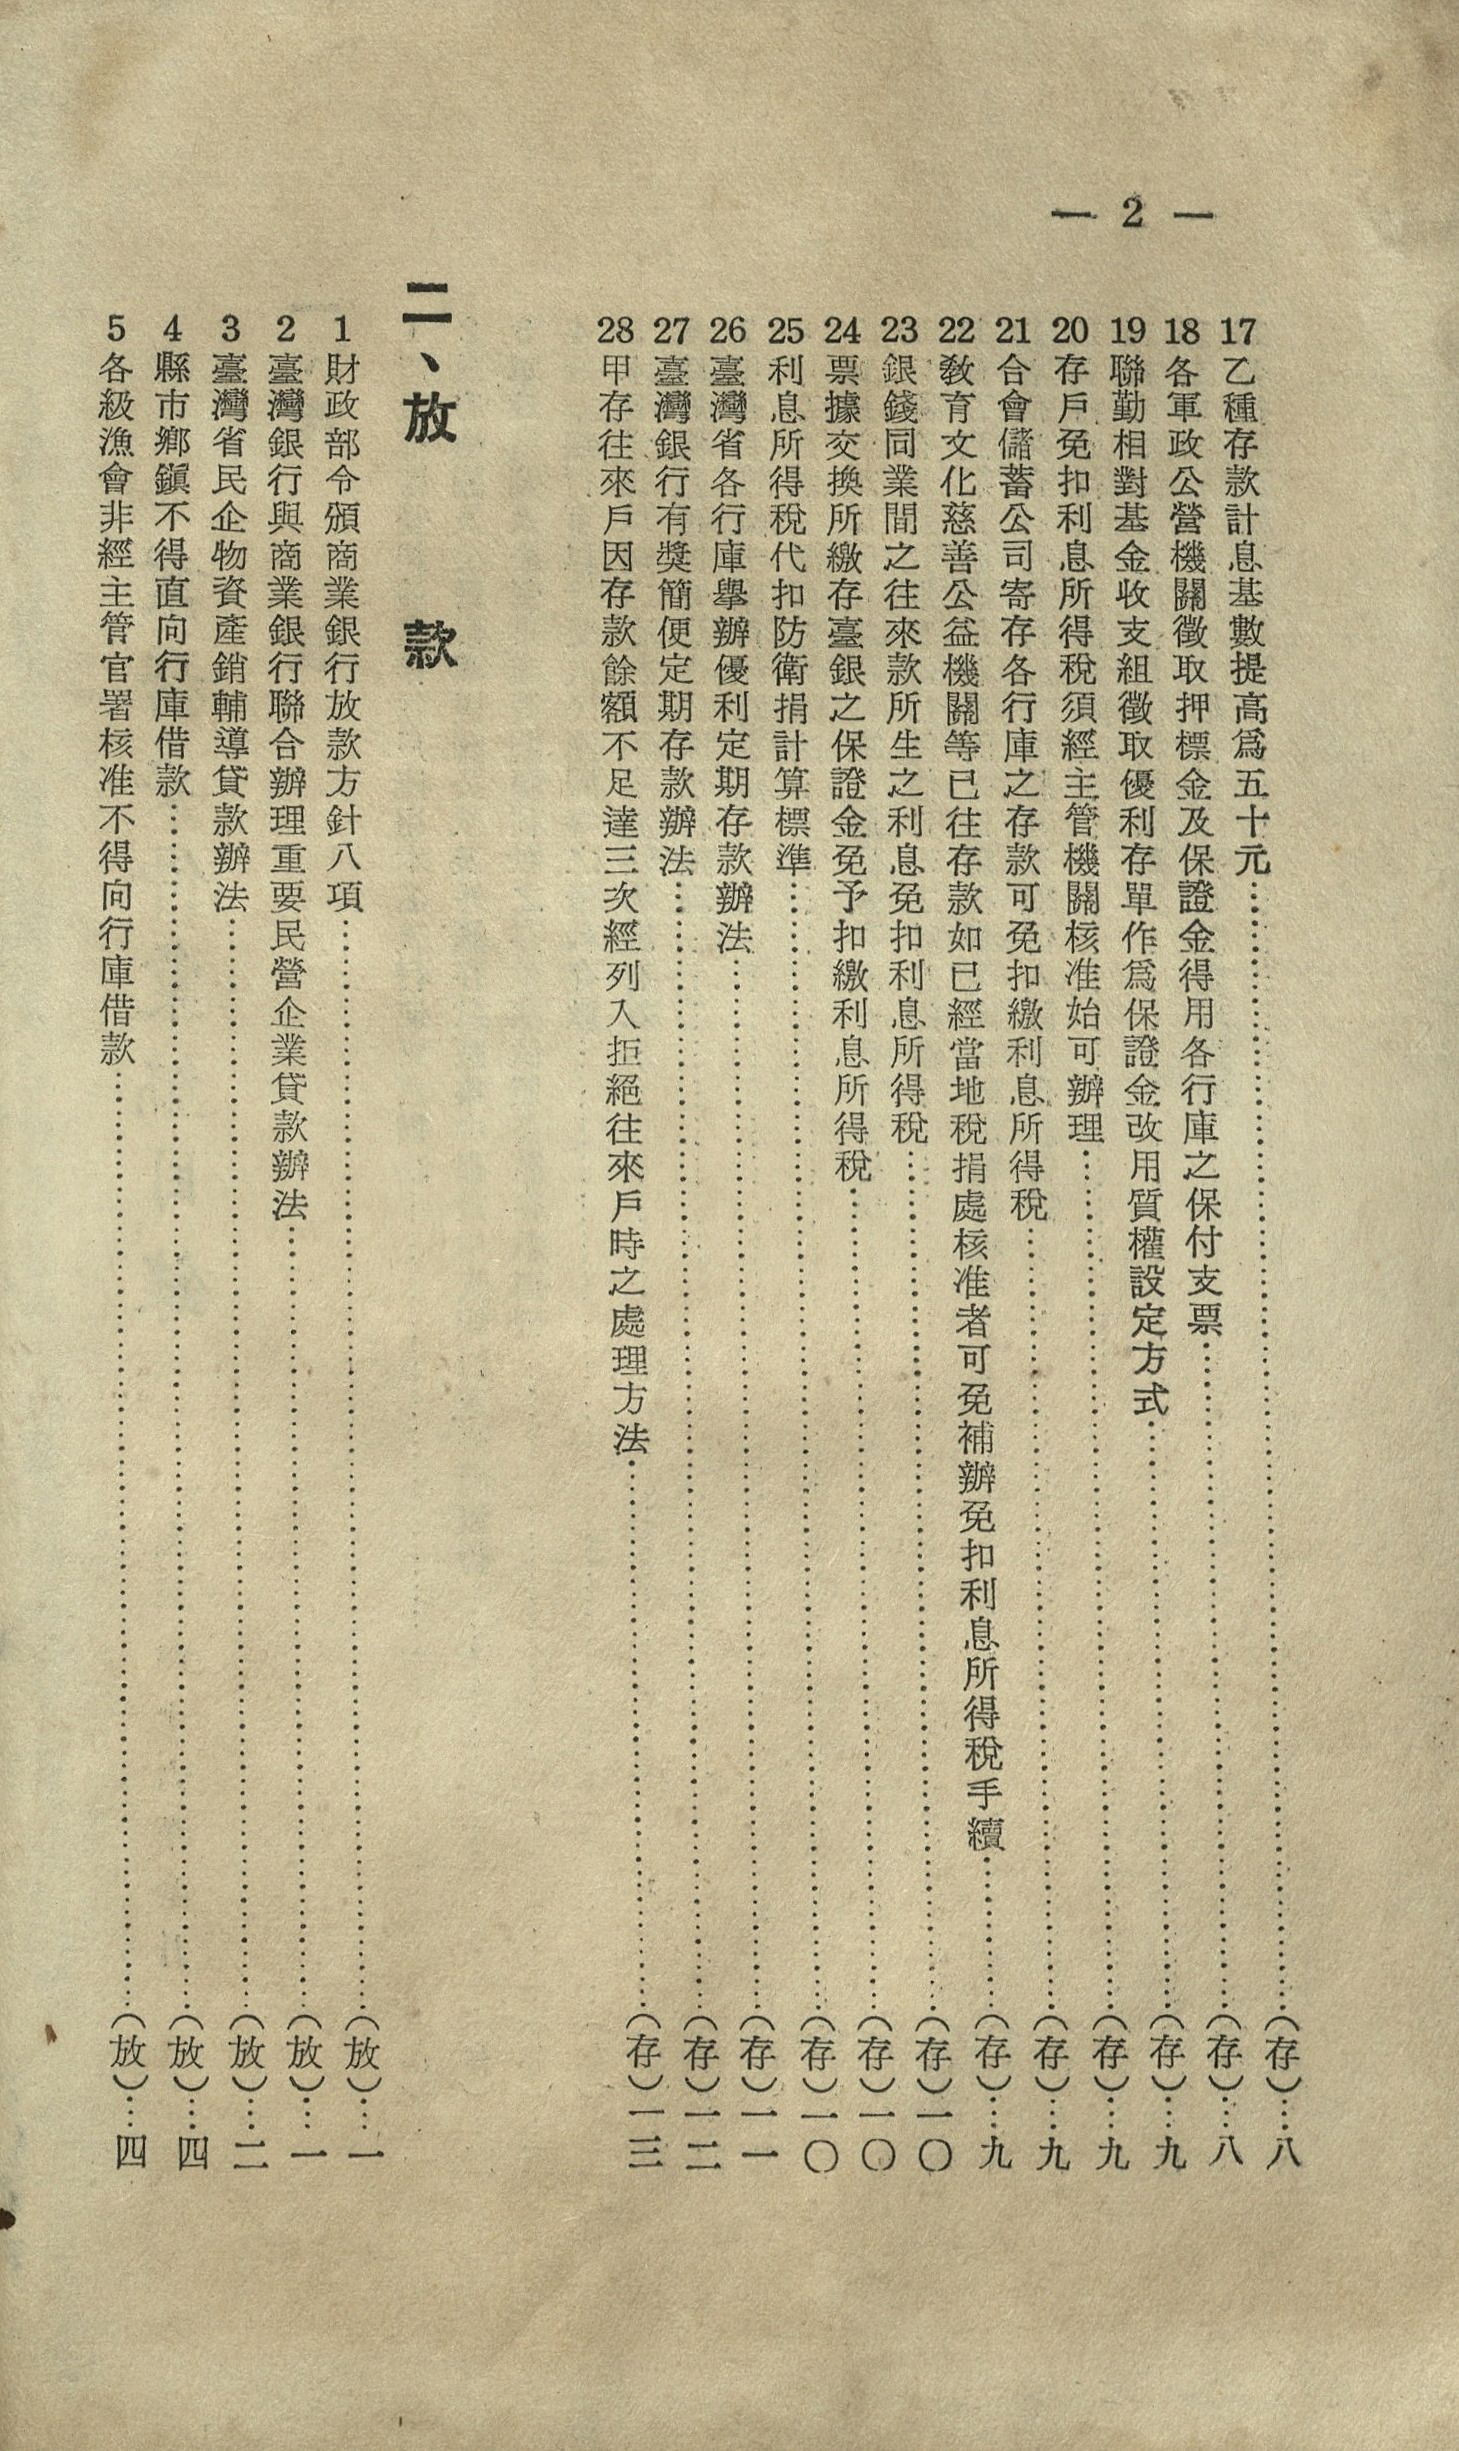 — 2 —
17 乙種存款計息基數提高爲五十元……(存)…八
18 各軍政公營機關徵取押標金及保證金得用各行庫之保付支票……(存)…八
19 聯勤相對基金收支組徵取優利存單作爲保證金改用質權設定方式……(存)…九
20 存戶免扣利息所得稅須經主管機關核准始可辦理……(存)…九
21 合會儲蓄公司寄存各行庫之存款可免扣繳利息所得稅……(存)…九
22 敎育文化慈善公益機關等已往存款如已經當地稅捐處核准者可免補辦免扣利息所得稅手續……(存)…九
23 銀錢同業間之往來款所生之利息免扣利息所得稅……(存)一〇
24 票據交換所繳存臺銀之保證金免予扣繳利息所得稅……(存)一〇
25 利息所得稅代扣防衛捐計算標準……(存)一〇
26 臺灣省各行庫舉辦優利定期存款辦法……(存)一一
27 臺灣銀行有獎簡便定期存款辦法……(存)一二
28 甲存往來戶因存款餘額不足達三次經列入拒絕往來戶時之處理方法……(存)一三
二、放　款
1 財政部令頒商業銀行放款方針八項……(放)…一
2 臺灣銀行與商業銀行聯合辦理重要民營企業貸款辦法……(放)…一
3 臺灣省民企物資產銷輔導貸款辦法……(放)…二
4 縣市鄉鎭不得直向行庫借款……(放)…四
5 各級漁會非經主管官署核准不得向行庫借款……(放)…四